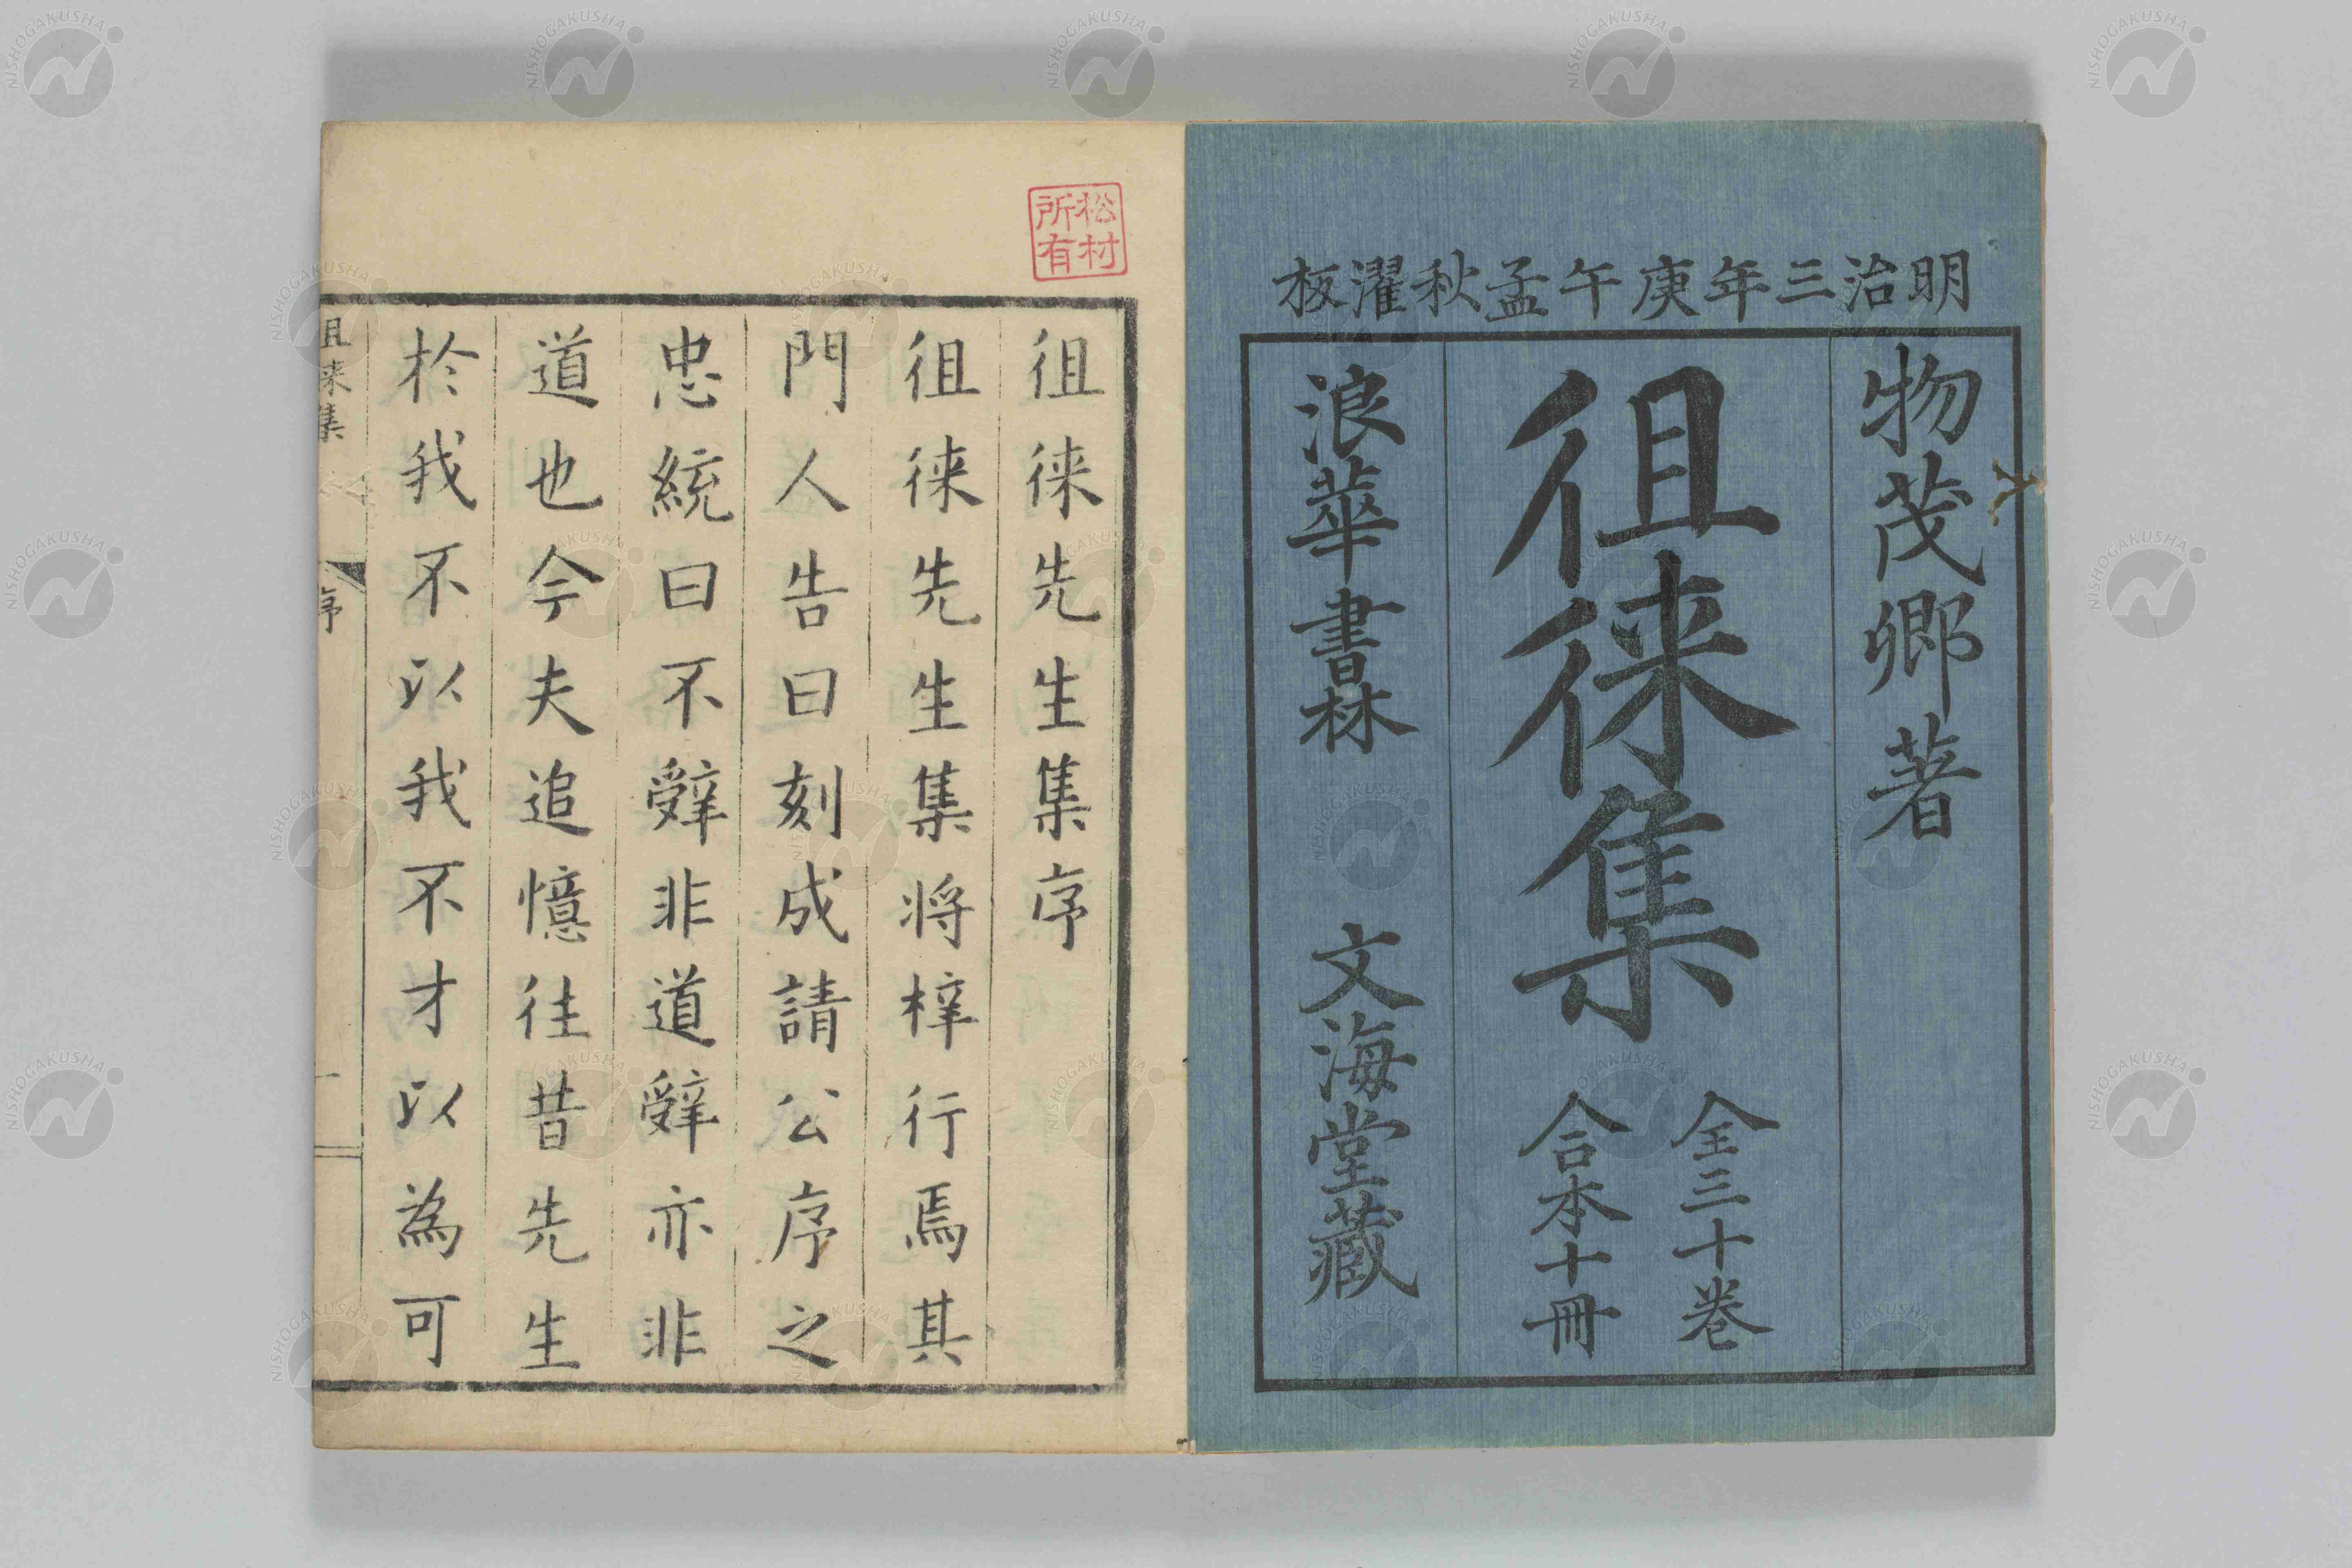 明治三年庚午孟秋濯板
物茂卿著
徂徠集
全三十巻
合本十冊
浪華書林 文海堂藏
松村
所有
徂徠先生集序
徂徠先生集将梓行焉其
門人告曰刻成請公序之
忠統曰不辤非道辤亦非
道也今夫追憶往昔先生
於我不以我不才以為可
徂徠集
序
一
NISHOGAKUSHA